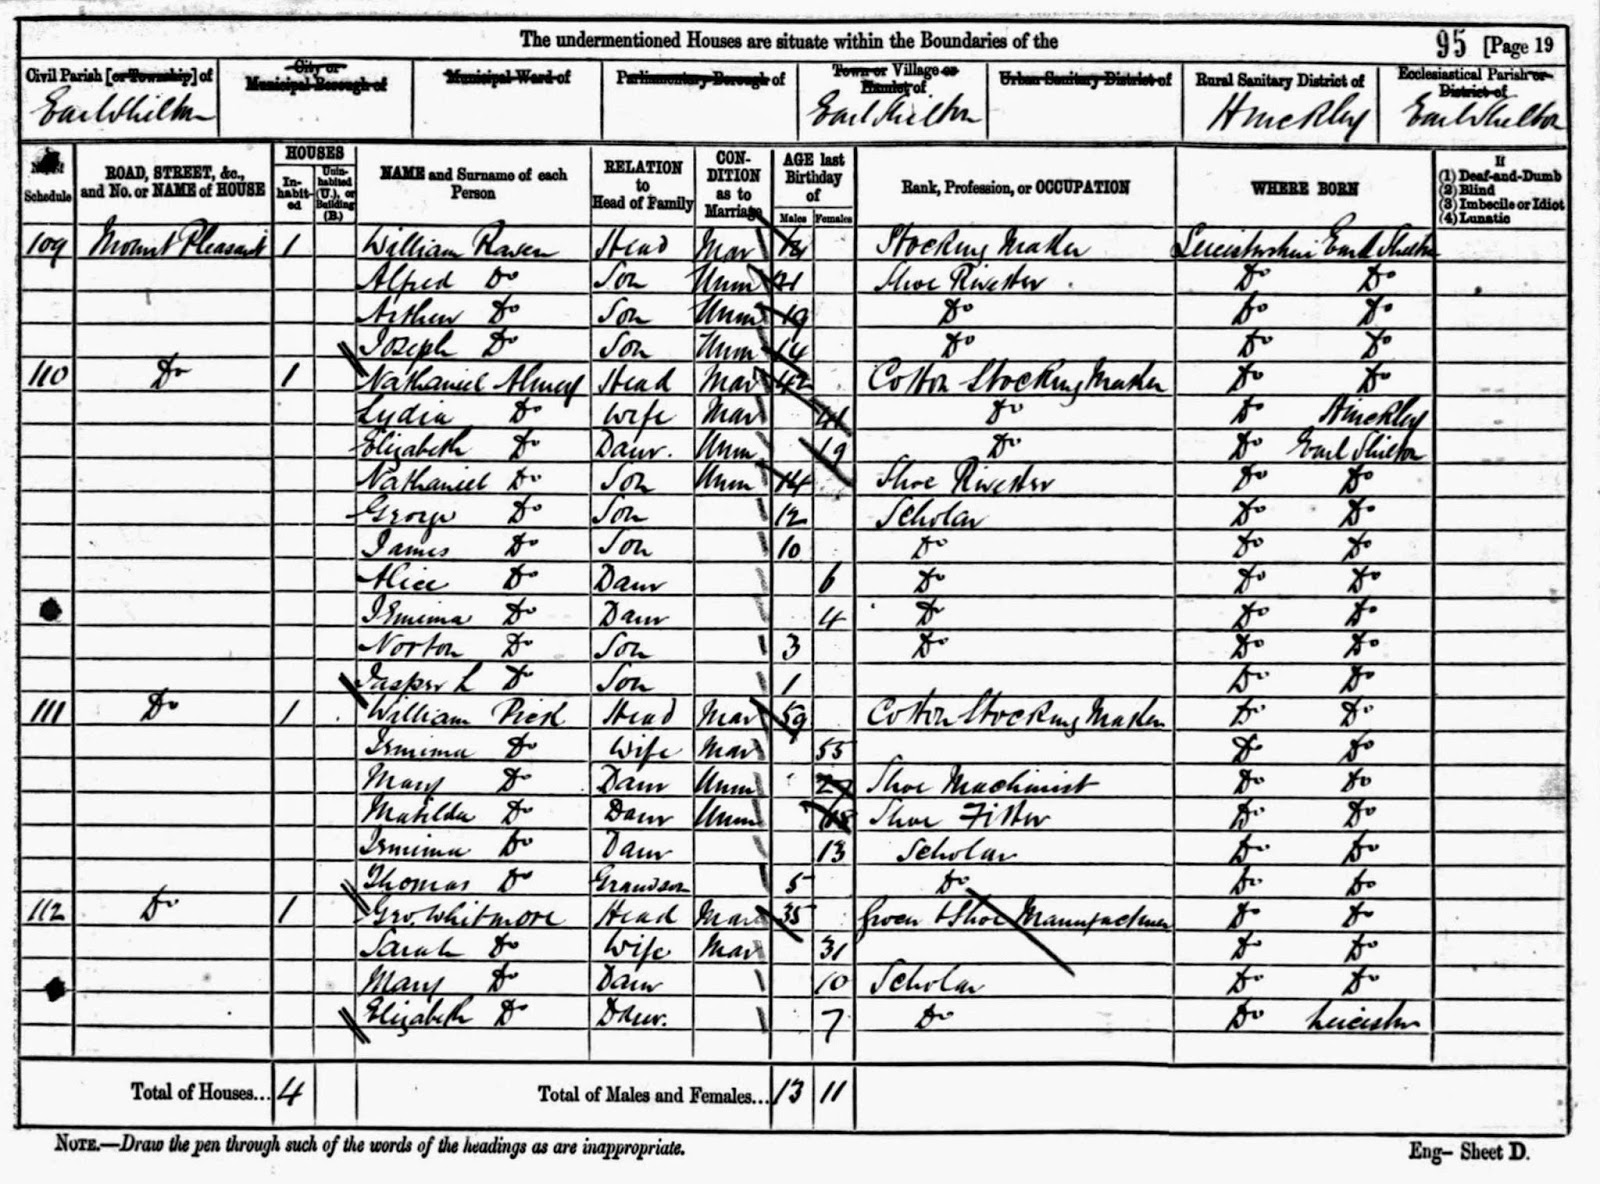 The undermentioned Houses are situate within the Boundaries of the 95 [Page 19
Civil Parish [or Township] of City or Municipal Borough of Municipal Ward of Parliamentary Borough of Town or Village or Hamlet of Urban Sanitary District of Rural Sanitary District of Ecclesiastical Parish or District of
Earl Shilton Earl Shilton Hinckley Earl Shilton
No. of Schedule ROAD, STREET, &c., and No. or NAME of HOUSE HOUSES In-habit-ed Unin-habited (U.), or Building (B.) NAME and Surname of each Person RELATION to Head of Family CON-DITION as to Marriage AGE last Birthday of Males Females Rank, Profession, or OCCUPATION WHERE BORN If (1) Deaf-and-Dumb (2) Blind (3) Imbecile or Idiot (4) Lunatic
109 Mount Pleasant 1 William Raven Head Mar Stocking Maker Leicestershire Earl Shilton
Alfred Do Son Unm 21 Shoe Rivetter Do Do
Arthur Do Son Unm 19 Do Do Do
Joseph Do Son Unm 14 Do Do Do
110 Do 1 Nathaniel Almey Head Mar 42 Cotton Stocking Maker Do Do
Lydia Do Wife Mar 41 Do Do Hinckley
Elizabeth Do Daur. Unm 19 Do Do Earl Shilton
Nathaniel Do Son Unm 14 Shoe Rivetter Do Do
George Do Son 12 Scholar Do Do
James Do Son 10 Do Do Do
Alice Do Daur 6 Do Do Do
Jemima Do Daur 4 Do Do Do
Norton Do Son 3 Do Do Do
Jasper L Do Son 1 Do Do
111 Do 1 William Pick Head Mar 59 Cotton Stocking Maker Do Do
Jemima Do Wife Mar 55 Do Do
Mary Do Daur Unm 27 Shoe Machinist Do Do
Matilda Do Daur Unm 18 Shoe Fitter Do Do
Jemima Do Daur 13 Scholar Do Do
Thomas Do Grandson 5 Do Do Do
112 Do 1 Geo. Whitmore Head Mar 35 Grocer & Shoe Manufacturer Do Do
Sarah Do Wife Mar 31 Do Do
Mary Do Daur 10 Scholar Do Do
Elizabeth Do Daur. 7 Do Do Leicester
Total of Houses... 4 Total of Males and Females... 13 11
NOTE.—Draw the pen through such of the words of the headings as are inappropriate.
Eng– Sheet D.